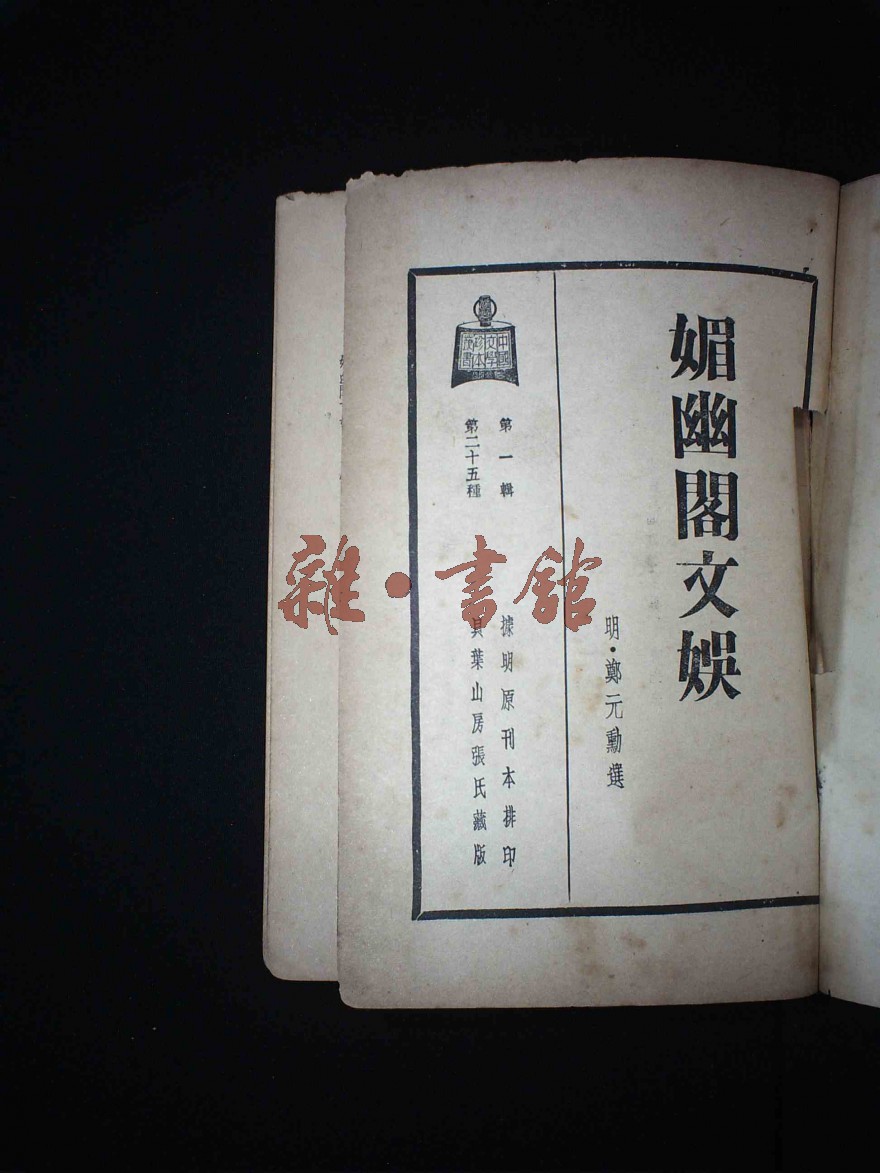 媚幽閣文娛
明·鄭元勳選
中國
文學
珍本
叢書
第一輯
第二十五種
據明原刊本排印
貝葉山房張氏藏版
雜·書館